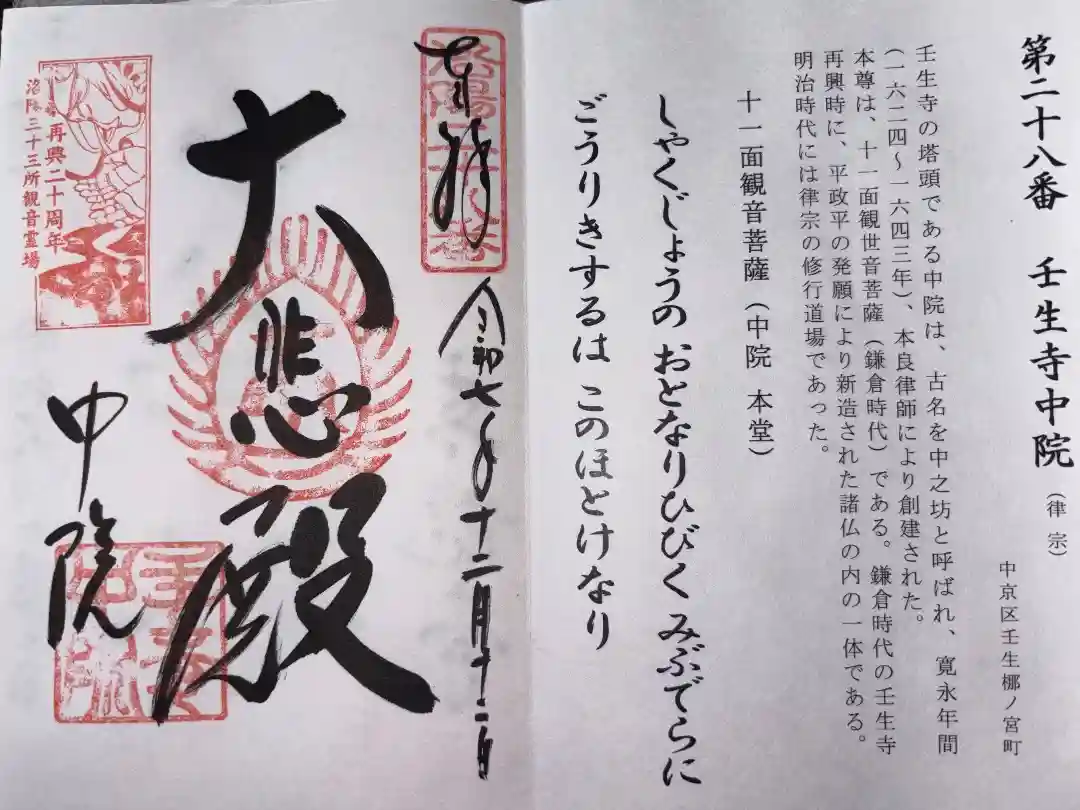 第二十八番 壬生寺中院（律宗）
中京区壬生梛ノ宮町
壬生寺の塔頭である中院は、古名を中之坊と呼ばれ、寛永年間
（一六二四〜一六四三年）、本良律師により創建された。
本尊は、十一面観世音菩薩（鎌倉時代）である。鎌倉時代の壬生寺
再興時に、平政平の発願により新造された諸仏の内の一体である。
明治時代には律宗の修行道場であった。
十一面観音菩薩（中院 本堂）
しゃくじょうの おとなりひびく みぶでらに
ごうりきするは このほとけなり
洛陽二十八番
奉拝
令和七年十二月十二日
大悲殿
中院
再興二十周年
洛陽三十三所観音霊場